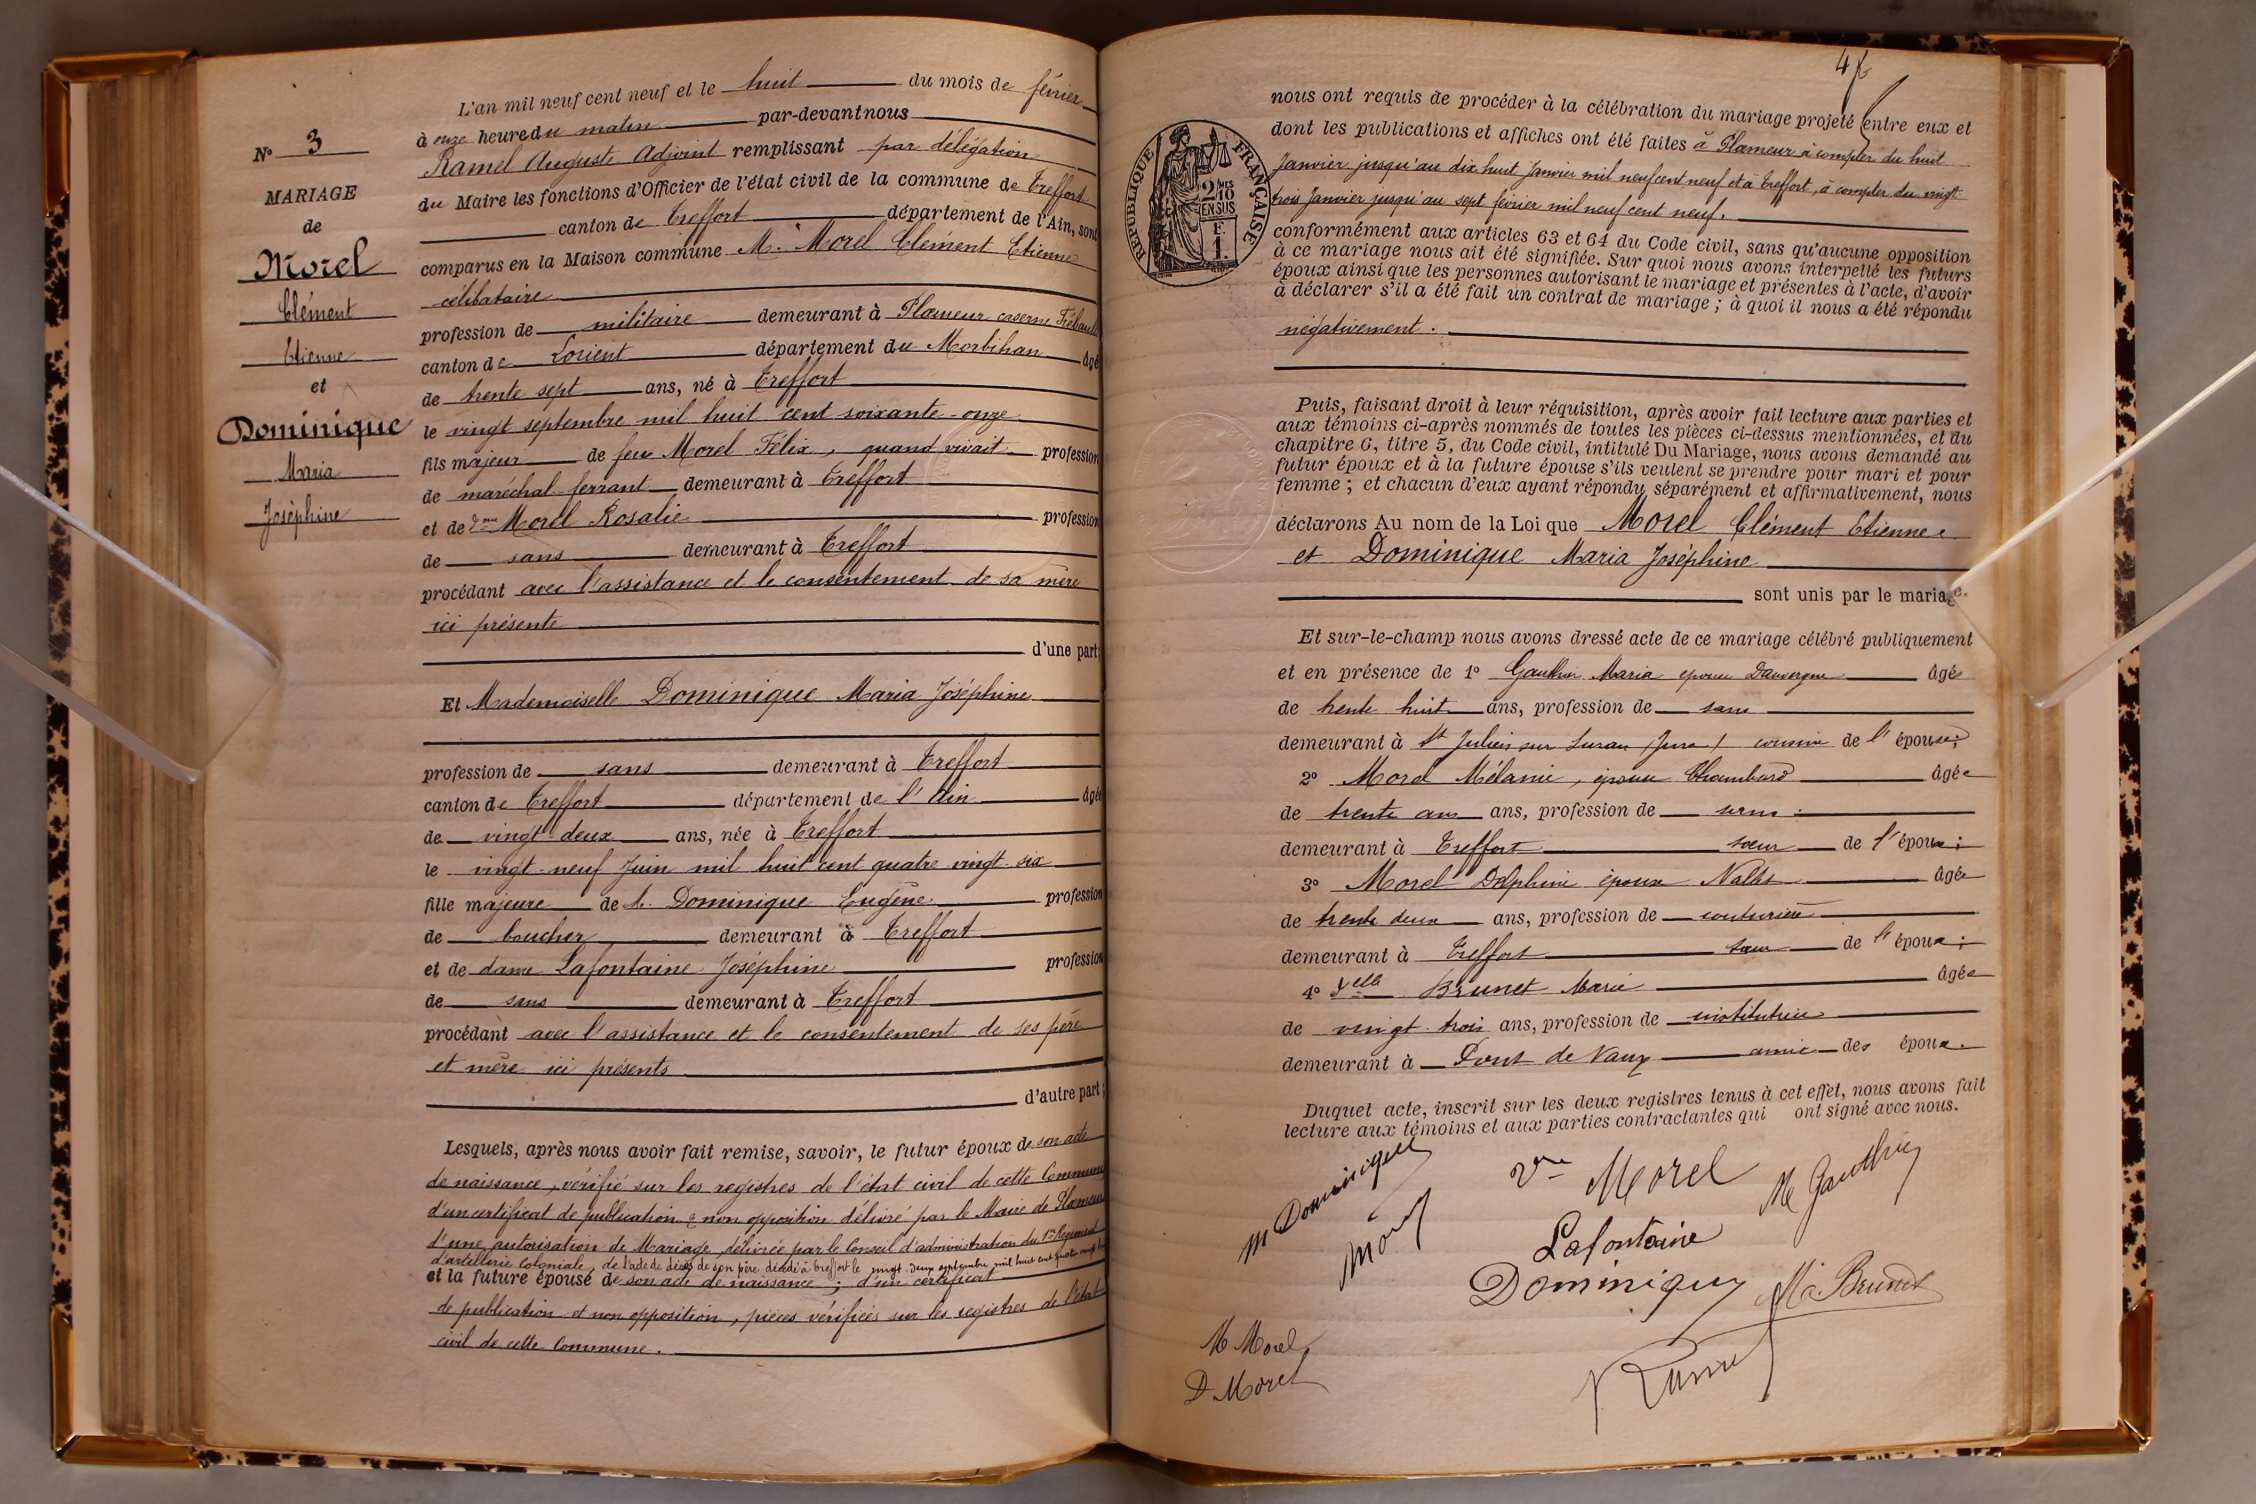 N° 3
MARIAGE
de
Morel
Clément
Etienne
et
Dominique
Maria
Joséphine
L'an mil neuf cent neuf et le huit du mois de février
à onze heure du matin par-devant nous
Ramel Auguste Adjoint remplissant par délégation
du Maire les fonctions d'Officier de l'état civil de la commune de Treffort
canton de Treffort département de l'Ain, sont
comparus en la Maison commune M. Morel Clément Etienne
célibataire
profession de militaire demeurant à Plœmeur caserne
canton de Lorient département du Morbihan âgé
de trente sept ans, né à Treffort
le vingt septembre mil huit cent soixante-onze
fils majeur de feu Morel Félix, quand vivait profession
de maréchal ferrant demeurant à Treffort
et de dme Morel Rosalie profession
de sans demeurant à Treffort
procédant avec l'assistance et le consentement de sa mère
ici présente
d'une part;
Et Mademoiselle Dominique Maria Joséphine
profession de sans demeurant à Treffort
canton de Treffort département de l'Ain âgée
de vingt-deux ans, née à Treffort
le vingt-neuf Juin mil huit cent quatre vingt-six
fille majeure de Dominique Eugène profession
de boucher demeurant à Treffort
et de dame Lafontaine Joséphine profession
de sans demeurant à Treffort
procédant avec l'assistance et le consentement de ses père
et mère ici présents
d'autre part;
Lesquels, après nous avoir fait remise, savoir, le futur époux de son acte
de naissance, vérifié sur les registres de l'état civil de cette Commune
d'un certificat de publication & non opposition délivré par le Maire de Plœmeur
d'une autorisation de Mariage, délivrée par le Conseil d'administration du 1er Régiment
d'artillerie Coloniale, de l'acte de décès de son père décédé à Treffort le vingt-deux septembre mil huit cent quatre vingt
et la future épouse de son acte de naissance; d'un certificat
de publication et non opposition, pièces vérifiées sur les registres de l'état
civil de cette Commune.
RÉPUBLIQUE FRANÇAISE
2/10 MES
EN SUS
F.
1.
nous ont requis de procéder à la célébration du mariage projeté entre eux et
dont les publications et affiches ont été faites à Plœmeur à compter du huit
Janvier jusqu'au dix huit Janvier mil neuf cent neuf et à Treffort, à compter du vingt
trois Janvier jusqu'au sept février mil neuf cent neuf.
conformément aux articles 63 et 64 du Code civil, sans qu'aucune opposition
à ce mariage nous ait été signifiée. Sur quoi nous avons interpellé les futurs
époux ainsi que les personnes autorisant le mariage et présentes à l'acte, d'avoir
à déclarer s'il a été fait un contrat de mariage; à quoi il nous a été répondu
négativement.
Puis, faisant droit à leur réquisition, après avoir fait lecture aux parties et
aux témoins ci-après nommés de toutes les pièces ci-dessus mentionnées, et du
chapitre 6, titre 5, du Code civil, intitulé Du Mariage, nous avons demandé au
futur époux et à la future épouse s'ils veulent se prendre pour mari et pour
femme; et chacun d'eux ayant répondu séparément et affirmativement, nous
déclarons Au nom de la Loi que Morel Clément Etienne
et Dominique Maria Joséphine
sont unis par le mariage.
Et sur-le-champ nous avons dressé acte de ce mariage célébré publiquement
et en présence de 1° Gauthier Maria épouse Dauvergne âgée
de trente huit ans, profession de sans
demeurant à St Julien sur Suran (Jura) cousine de l'épouse;
2° Morel Mélanie, épouse Chambard âgée
de trente ans ans, profession de sans
demeurant à Treffort sœur de l'époux;
3° Morel Delphine épouse âgée
de trente deux ans, profession de couturière
demeurant à Treffort sœur de l'époux;
4° Delle Brunet Marie âgée
de vingt-trois ans, profession de institutrice
demeurant à Pont de Vaux amie des époux.
Duquel acte, inscrit sur les deux registres tenus à cet effet, nous avons fait
lecture aux témoins et aux parties contractantes qui ont signé avec nous.
M Dominique
Morel
Vve Morel
M Gauthier
Lafontaine
Dominique
M. Brunet
M Morel
D Morel
Ramel